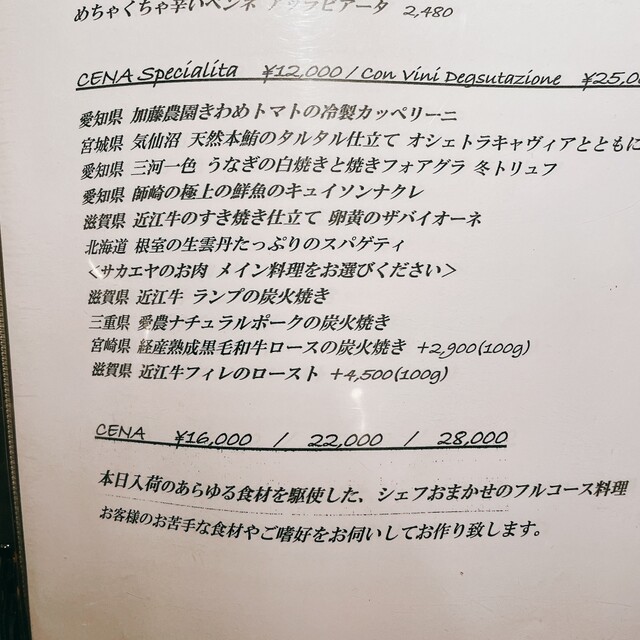 めちゃくちゃ辛いペンネ アラビアータ 2,480
CENA Specialita ¥12,000 / Con Vini Degsutazione ¥25,0
愛知県 加藤農園きわめトマトの冷製カッペリーニ
宮城県 気仙沼 天然本鮪のタルタル仕立て オシェトラキャヴィアとともに
愛知県 三河一色 うなぎの白焼きと焼きフォアグラ 冬トリュフ
愛知県 師崎の極上の鮮魚のキュイソンナクレ
滋賀県 近江牛のすき焼き仕立て 卵黄のザバイオーネ
北海道 根室の生雲丹たっぷりのスパゲティ
＜サカエヤのお肉 メイン料理をお選びください＞
滋賀県 近江牛 ランプの炭火焼き
三重県 愛農ナチュラルポークの炭火焼き
宮崎県 経産熟成黒毛和牛ロースの炭火焼き +2,900(100g)
滋賀県 近江牛フィレのロースト +4,500(100g)
CENA ¥16,000 / 22,000 / 28,000
本日入荷のあらゆる食材を駆使した、シェフおまかせのフルコース料理
お客様のお苦手な食材やご嗜好をお伺いしてお作り致します。